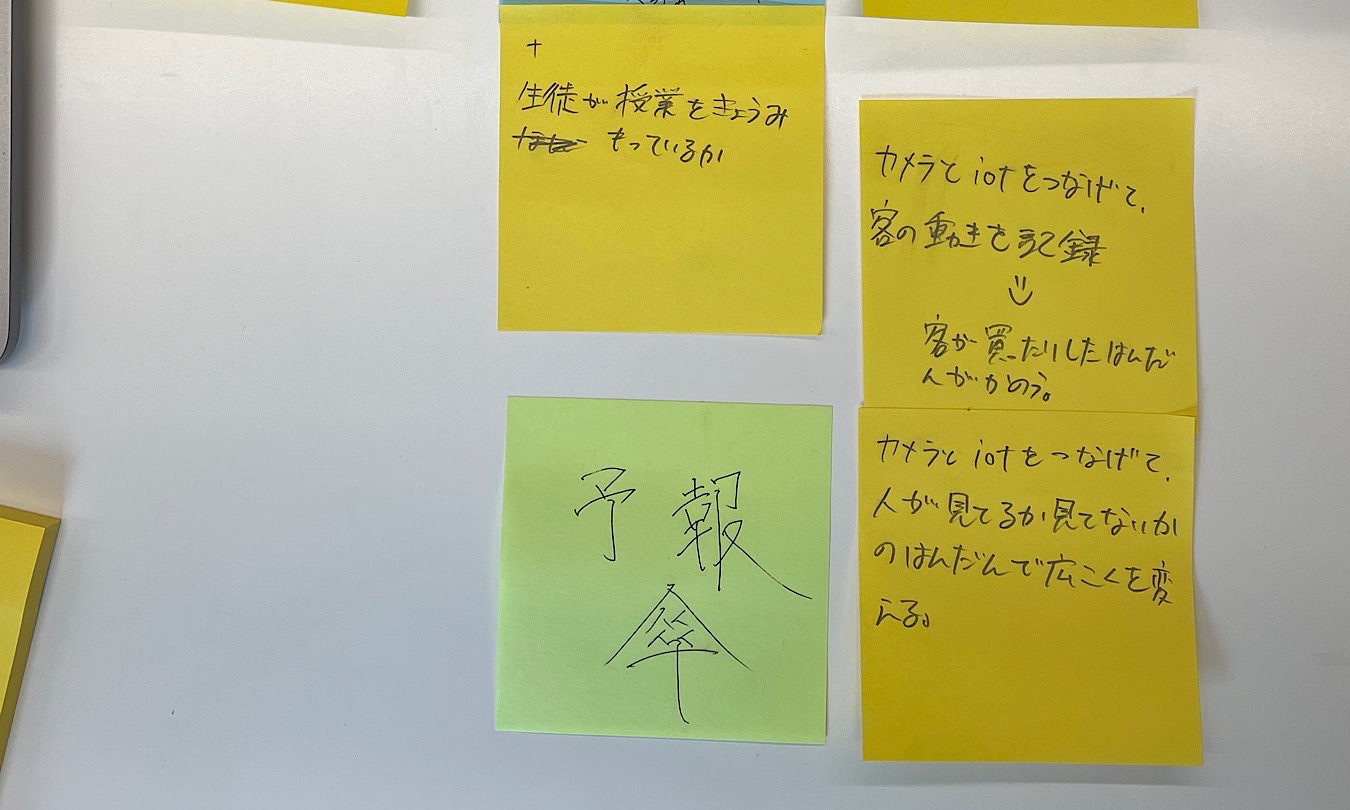 +
生徒が授業をきょうみ
もっているか
カメラと iotをつなげて、
客の動きを記録
客が買ったりしたはんだ
んがかのう。
予報
傘
カメラと iotをつなげて、
人が見てるか見てないか
のはんだんで広こくを変
える。